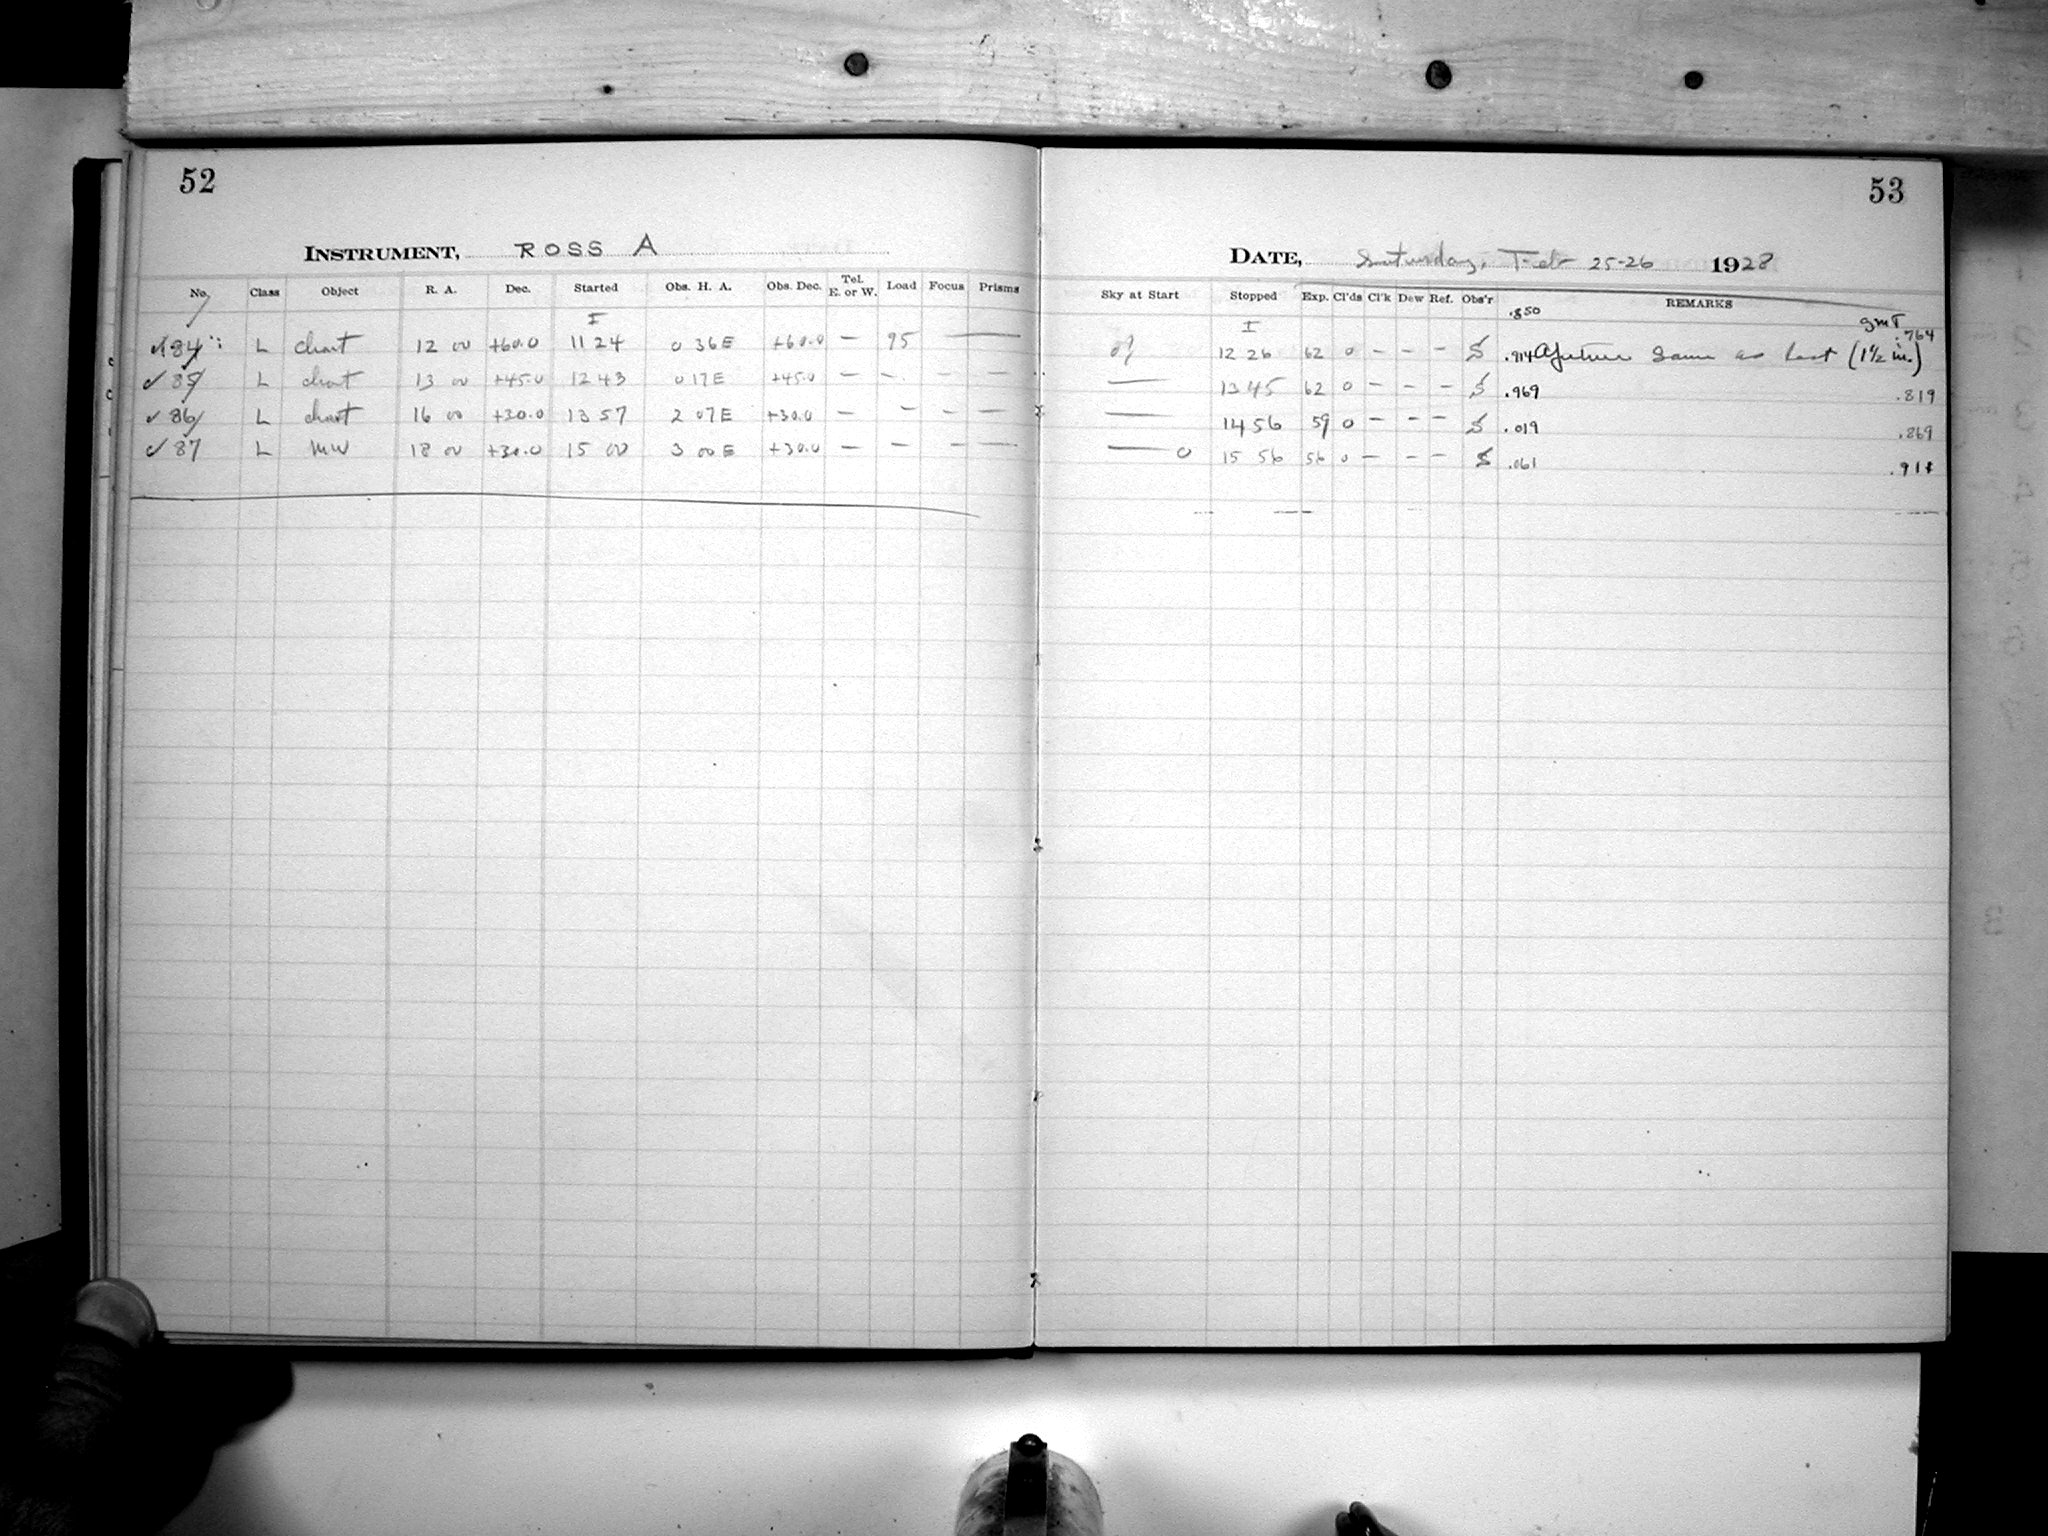 52
53
INSTRUMENT, ROSS A
DATE, Saturday, Feb 25-26 1928
No. Class Object R. A. Dec. Started Obs. H. A. Obs. Dec. Tel. E. or W. Load Focus Prisms
Sky at Start Stopped Exp. Cl'ds Cl'k Dew Ref. Obs'r REMARKS
I I .850 GMT
84 L chart 12 00 +60.0 11 24 0 36E +60.0 — 95 — 12 26 62 0 – – – S .914 Aperture same as last (1½ in.) .764
✓ 85 L chart 13 00 +45.0 12 43 0 17E +45.0 — — – — — 13 45 62 0 – – – S .969 .819
✓ 86 L chart 16 00 +30.0 13 57 2 07E +30.0 — — – — — 14 56 59 0 – – – S .019 .869
✓ 87 L MW 18 00 +30.0 15 00 3 00E +30.0 — — – — — 0 15 56 56 0 – – – S .061 .911